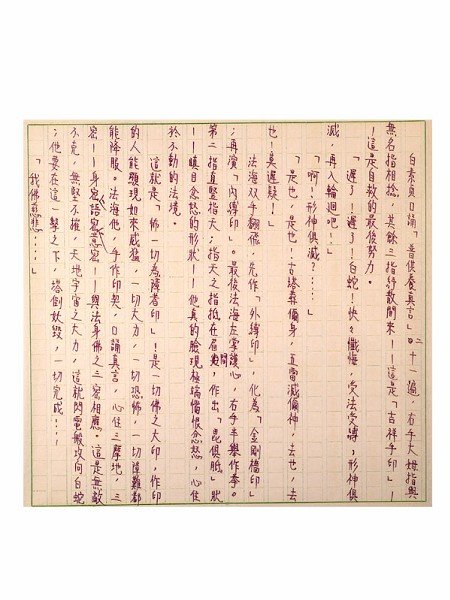 白素貞口誦「普供養真言」二十一遍，右手大姆指與
無名指相捻，其餘三指紓散開來！這是「吉祥手印」！
！這是自救的最後努力。
「遲了！遲了！白蛇！快々懺悔，受法受縛；形神俱
滅，再入輪迴吧！」
「啊！形神俱滅？····」
「是也，是也！古塔葬儞身，直當滅儞神，去也，去
也！莫遲疑！」
法海双手翻飛，先作「外縛印」，化為「金剛橛印」
；再演「內縛印」。最後法海左掌護心，右手半舉作拳。
第二指直豎指天；指天之指抵在眉間，作出「毘俱胝」狀
——瞋目忿怒的形狀——他真的臉現極端憎恨忿怒，心住
於不動的法境。
這就是「佈一切為障者印」！是一切佛之大印，作印
的人能顯現如來威猛，一切大力，一切恐怖，一切障難都
能降服。法海他，手作印契，口誦真言，心住三摩地，三
密——身密語密意密——與法身佛之三密相應。這是無敵
不克，無堅不摧，天地宇宙之大力，這就閃電般攻向白蛇
；他要在這一擊之下，塔倒妖毀，一切完成····
「我佛慈悲····」